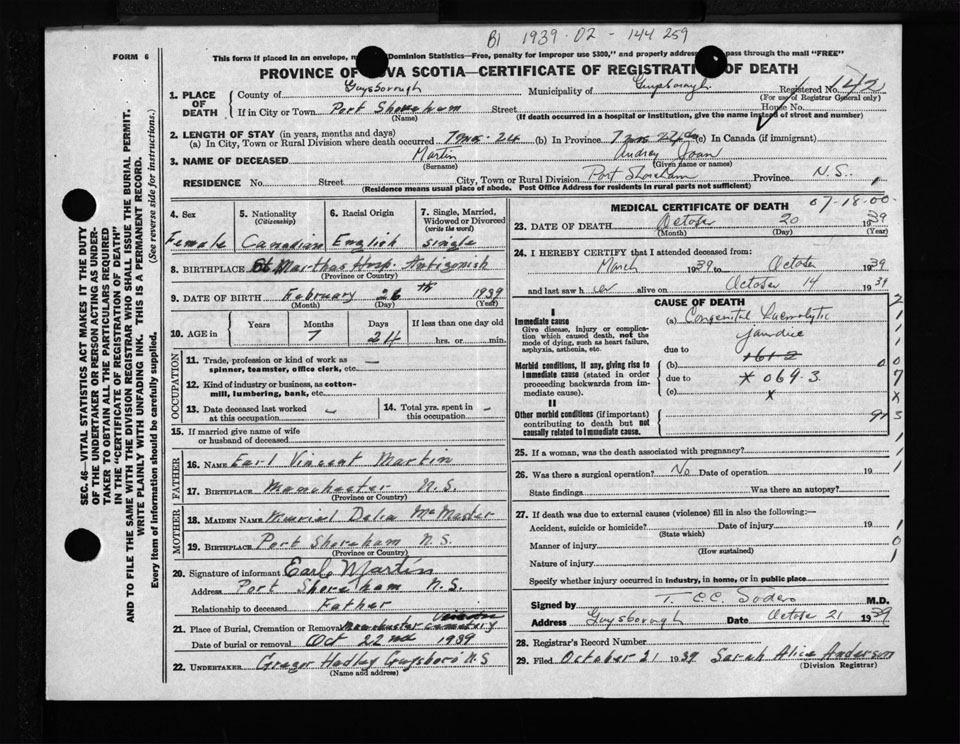 B1 1939-02-144259
FORM 6
This form if placed in an envelope, Dominion Statistics—Free, penalty for improper use $300," and properly address pass through the mail "FREE"
PROVINCE OF NOVA SCOTIA—CERTIFICATE OF REGISTRATION OF DEATH
1. PLACE OF DEATH
County of Guysborough Municipality of Guysborough Registered No. 42
(For use of Registrar General only)
If in City or Town Port Shoreham Street House No.
(Name) (If death occurred in a hospital or institution, give the name instead of street and number)
2. LENGTH OF STAY (in years, months and days)
(a) In City, Town or Rural Division where death occurred 7 mos - 24 (b) In Province 7 mos 24 da (c) In Canada (if immigrant)
3. NAME OF DECEASED Martin Audrey Joan
(Surname) (Given name or names)
RESIDENCE No. Street City, Town or Rural Division Port Shoreham Province N.S.
(Residence means usual place of abode. Post Office Address for residents in rural parts not sufficient)
4. Sex
Female
5. Nationality
(Citizenship)
Canadian
6. Racial Origin
English
7. Single, Married,
Widowed or Divorced
(write the word)
Single
8. BIRTHPLACE St Marthas Hosp. Antigonish
(Province or Country)
9. DATE OF BIRTH February 26th 1939
(Month) (Day) (Year)
10. AGE in
Years Months Days If less than one day old
7 24 hrs. or min.
OCCUPATION
11. Trade, profession or kind of work as
spinner, teamster, office clerk, etc. —
12. Kind of industry or business, as cotton-
mill, lumbering, bank, etc.
13. Date deceased last worked
at this occupation —
14. Total yrs. spent in
this occupation —
15. If married give name of wife
or husband of deceased
FATHER
16. NAME Earl Vincent Martin
17. BIRTHPLACE Manchester N.S.
(Province or Country)
MOTHER
18. MAIDEN NAME Murial Dalia McMaster
19. BIRTHPLACE Port Shoreham N.S.
(Province or Country)
20. Signature of informant Earl Martin
Address Port Shoreham N.S.
Relationship to deceased Father
21. Place of Burial, Cremation or Removal Manchester Cemetery
Date of burial or removal Oct 22nd 1939
22. UNDERTAKER Gregor Hadley Guysboro N.S
(Name and address)
MEDICAL CERTIFICATE OF DEATH 07-18-00
23. DATE OF DEATH October 20 1939
(Month) (Day) (Year)
24. I HEREBY CERTIFY that I attended deceased from:
March 1939 to October 1939
and last saw her alive on October 14 1939
CAUSE OF DEATH
I
Immediate cause
Give disease, injury or complica-
tion which caused death, not the
mode of dying, such as heart failure,
asphyxia, asthenia, etc.
(a) Congenital Haemolytic
jaundice
due to 161-2
Morbid conditions, if any, giving rise to
immediate cause (stated in order
proceeding backwards from im-
mediate cause).
(b)
due to * 069.3
(c) x
II
Other morbid conditions (if important)
contributing to death but not
causally related to immediate cause.
25. If a woman, was the death associated with pregnancy?
26. Was there a surgical operation? No Date of operation 19
State findings Was there an autopsy?
27. If death was due to external causes (violence) fill in also the following:—
Accident, suicide or homicide? Date of injury 19
(State which)
Manner of injury
(How sustained)
Nature of injury
Specify whether injury occurred in industry, in home, or in public place
Signed by T. C.C. Sodero M.D.
Address Guysborough Date October 21 1939
28. Registrar's Record Number
29. Filed October 21 1939 Sarah Alice Anderson
(Division Registrar)
SEC. 46—VITAL STATISTICS ACT MAKES IT THE DUTY
OF THE UNDERTAKER OR PERSON ACTING AS UNDER-
TAKER TO OBTAIN ALL THE PARTICULARS REQUIRED
IN THE "CERTIFICATE OF REGISTRATION OF DEATH"
AND TO FILE THE SAME WITH THE DIVISION REGISTRAR WHO SHALL ISSUE THE BURIAL PERMIT.
WRITE PLAINLY WITH UNFADING INK. THIS IS A PERMANENT RECORD.
Every item of information should be carefully supplied. (See reverse side for instructions.)